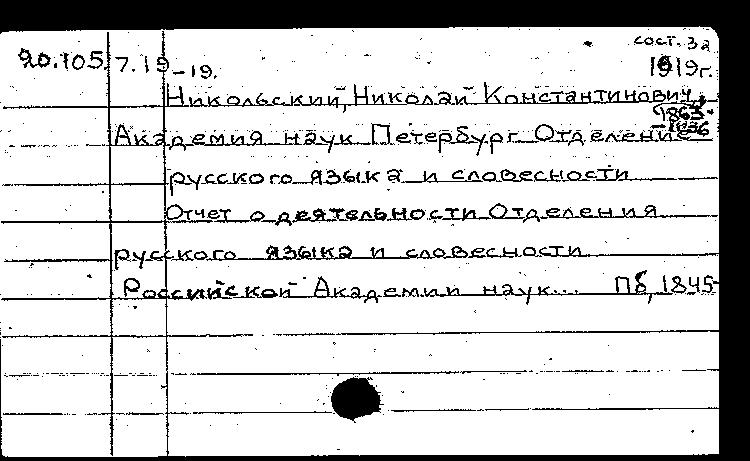 сост. за
20.105. 7.19-19. 1919г.
Никольский, Николай Константинович,
1863-
-1936
Академия наук Петербург Отделение
русского языка и словесности
Отчет о деятельности Отделения
русского языка и словесности
Российской Академии наук... Пб, 1845-